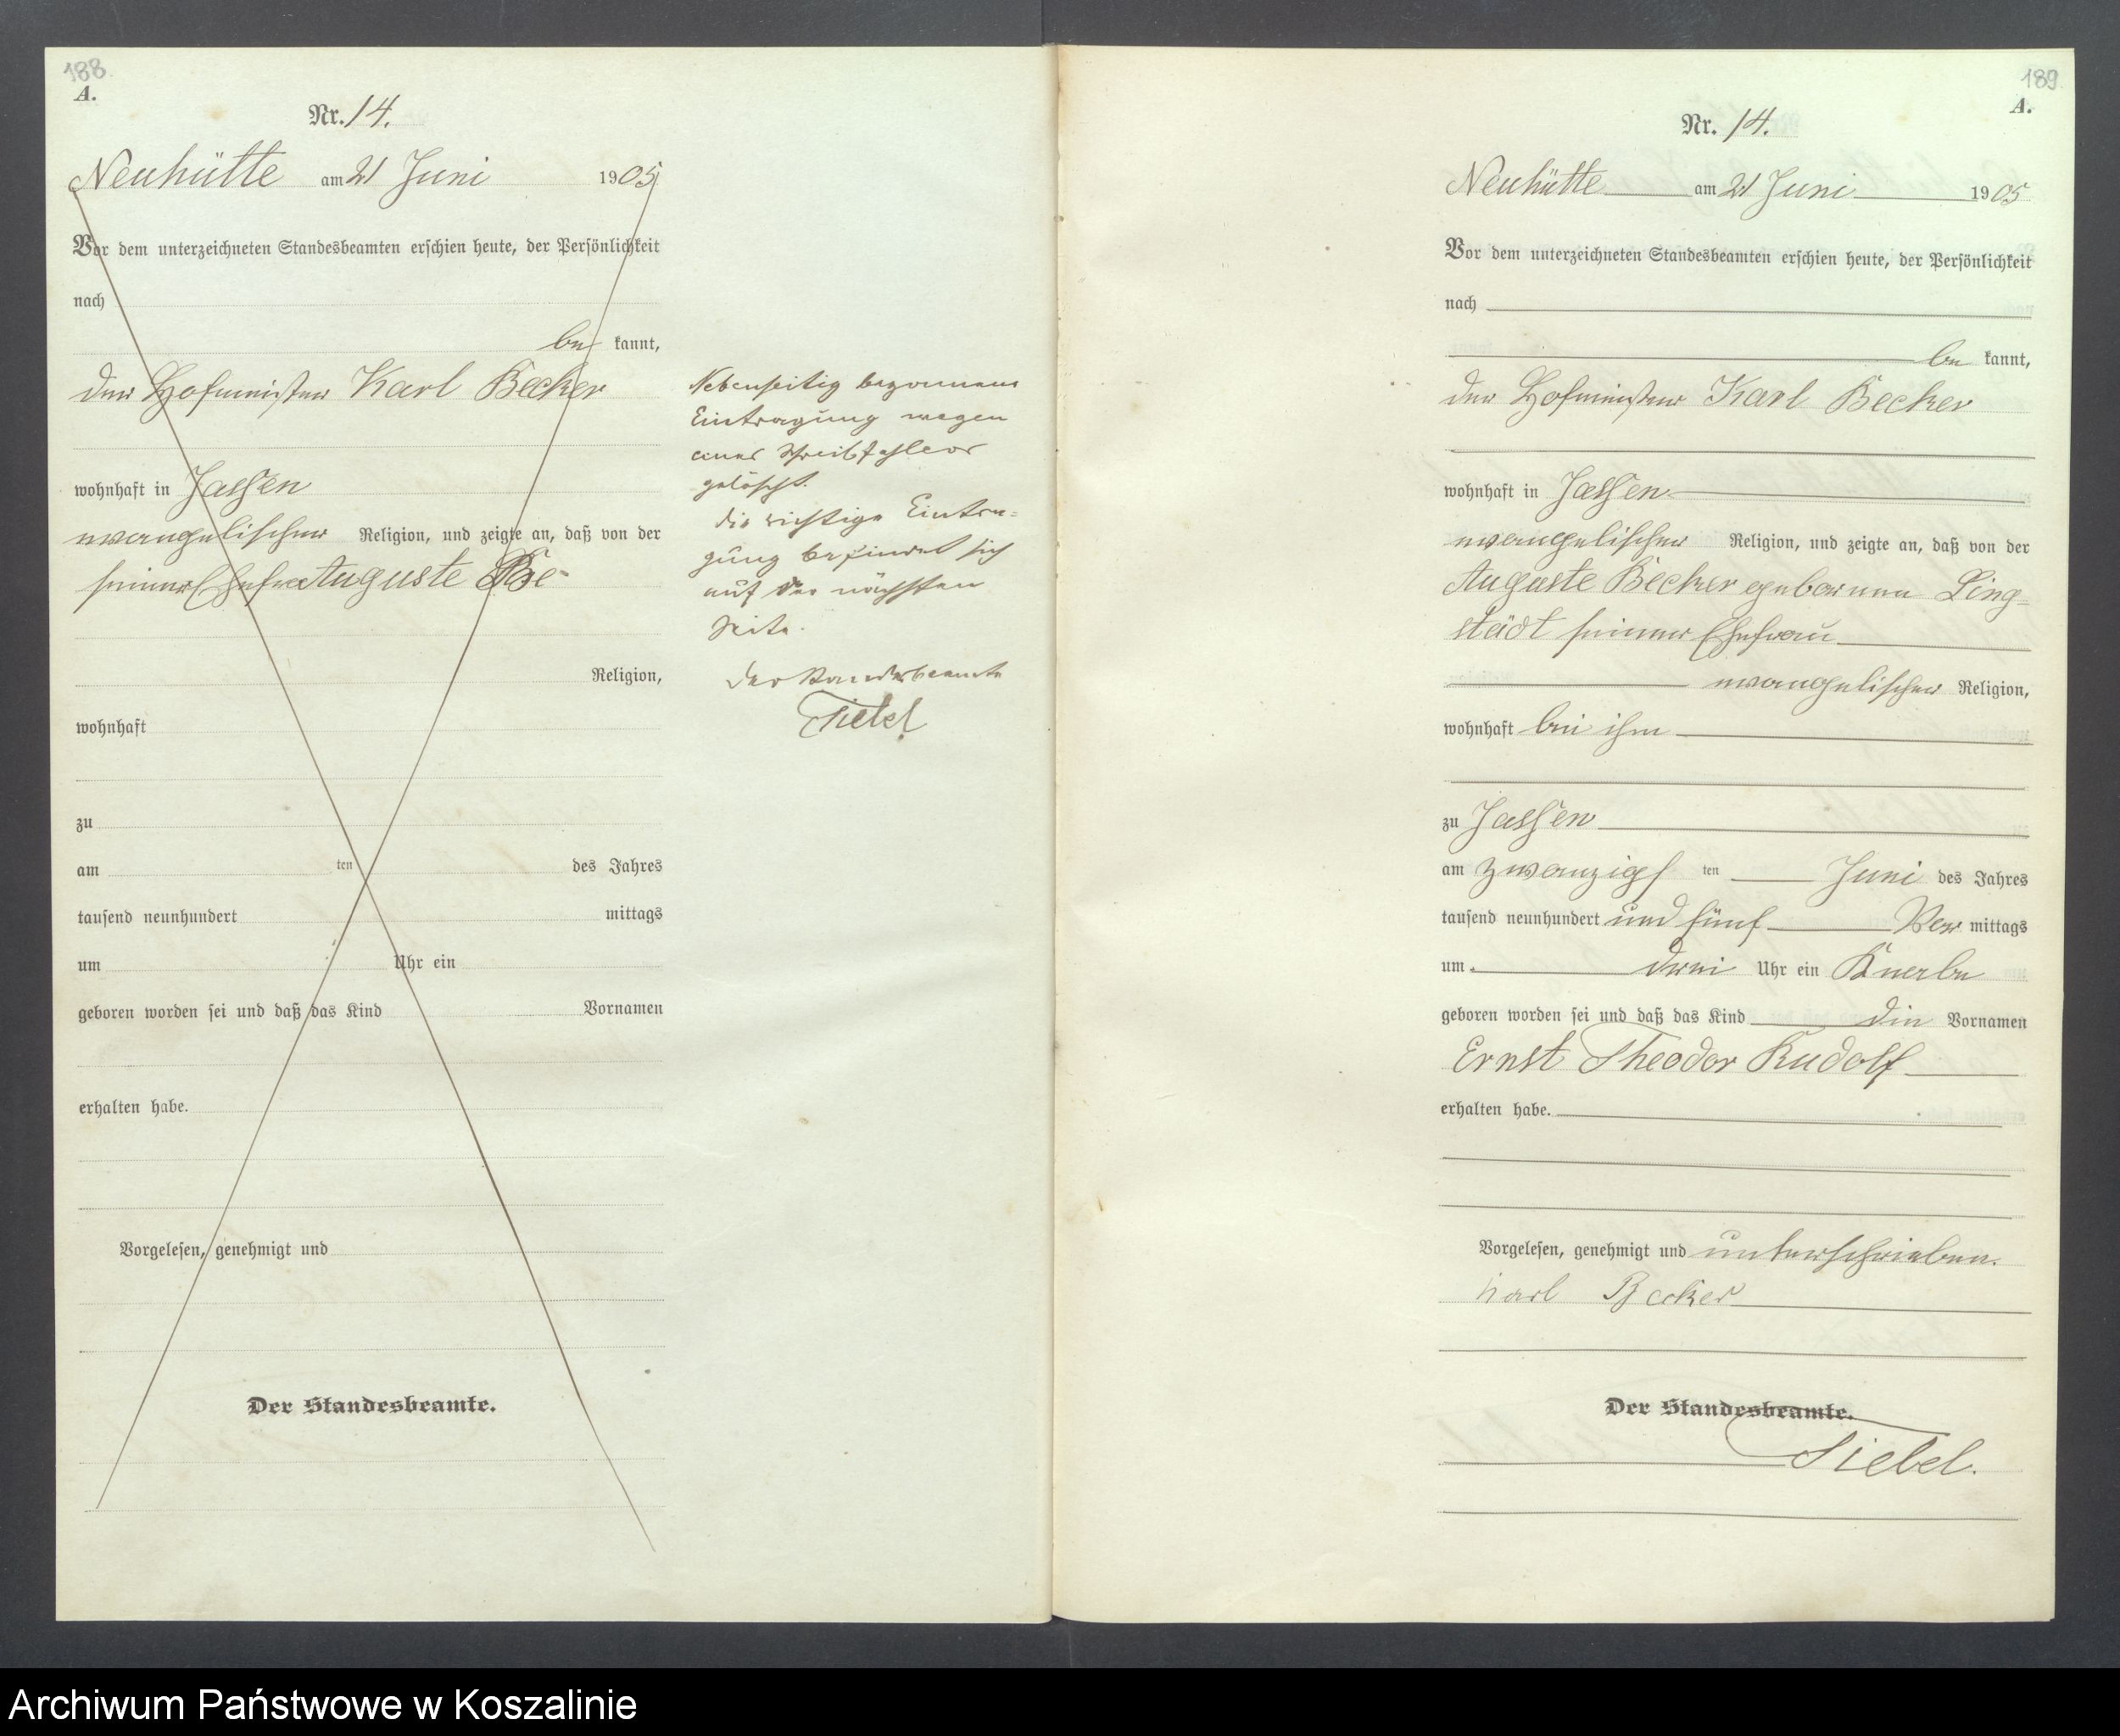 188
A.
Nr. 14.
Neuhütte am 21 Juni 1905
Vor dem unterzeichneten Standesbeamten erschien heute, der Persönlichkeit
nach
be kannt,
der Hofmeister Karl Becker
wohnhaft in Jassen
evangelischer Religion, und zeigte an, daß von der
seiner Ehefrau Auguste Be-
Religion,
wohnhaft
zu
am ten des Jahres
tausend neunhundert mittags
um Uhr ein
geboren worden sei und daß das Kind Vornamen
erhalten habe.
Vorgelesen, genehmigt und
Der Standesbeamte.
Nebenseitig begonnene
Eintragung wegen
eines Schreibfehlers
gelöscht.
Die richtige Eintra=
gung befindet sich
auf der nächsten
Seite.
Der Standesbeamte
Tiebel
189
A.
Nr. 14.
Neuhütte am 21 Juni 1905
Vor dem unterzeichneten Standesbeamten erschien heute, der Persönlichkeit
nach
be kannt,
der Hofmeister Karl Becker
wohnhaft in Jassen
evangelischer Religion, und zeigte an, daß von der
Auguste Becker geborenen Ling=
städt seiner Ehefrau
evangelischer Religion,
wohnhaft bei ihm
zu Jassen
am zwanzigs ten Juni des Jahres
tausend neunhundert und fünf Vor mittags
um drei Uhr ein Knabe
geboren worden sei und daß das Kind die Vornamen
Ernst Theodor Rudolf
erhalten habe.
Vorgelesen, genehmigt und unterschrieben.
Karl Becker
Der Standesbeamte.
Tiebel.
Archiwum Państwowe w Koszalinie